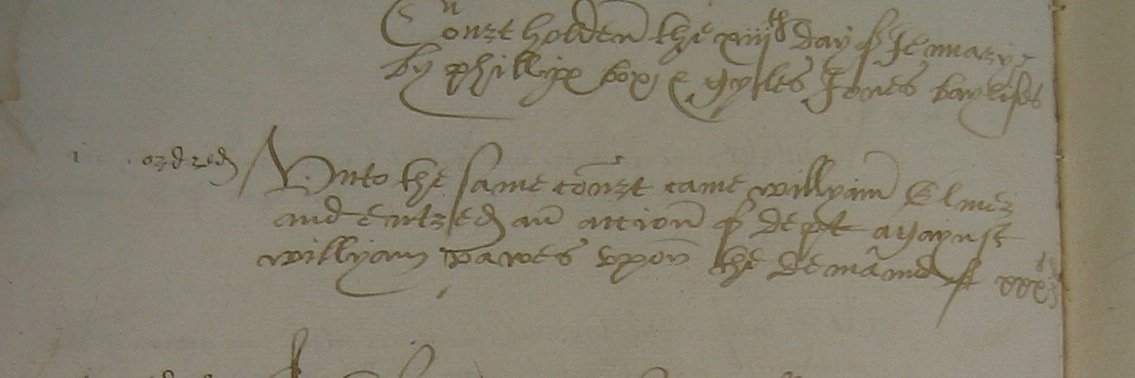 Court holden the xiiijth day of Jenuarij
by phillipe box & gylles Jones baylifes
ordred Vnto the same court came willyam Elmez
and entred an action of dept agaynst
willyam pawes vpon the demand of